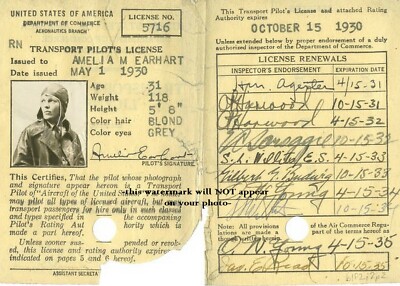 UNITED STATES OF AMERICA
DEPARTMENT OF COMMERCE
AERONAUTICS BRANCH
LICENSE NO.
5716
RN TRANSPORT PILOT'S LICENSE
Issued to AMELIA M EARHART
Date issued MAY 1 1930
Age 31
Weight 118
Height 5' 8"
Color hair BLOND
Color eyes GREY
Amelia Earhart
Pilot's Signature
This Certifies, That the pilot whose photograph
and signature appear hereon is a Transport
Pilot of "Aircraft of the United States
may pilot all types of licensed aircraft, but
transport passengers for hire only in such
and types specified in the accompanying
Pilot's Rating Authority which is made
a part hereof.
Unless sooner suspended or revoked,
this license and rating authority expires
as indicated on pages 5 and 6 hereof.
ASSISTANT SECRETA
This Transport Pilot's License and attached Rating
Authority expires
OCTOBER 15 1930
Unless extended below by proper endorsement of a
duly authorized inspector of the Department of Commerce.
LICENSE RENEWALS
INSPECTOR'S ENDORSEMENT EXPIRATION DATE
4/15-31
10-15-31
4-15-32
10-15-33
4-15-33
10-15-33
4-15-34
10-15-34
Note: All provisions of the Air Commerce Regulations
are made a part of the terms hereof.
C. W. Young 4-15-35
10-15-35
this watermark will NOT appear
on your photo